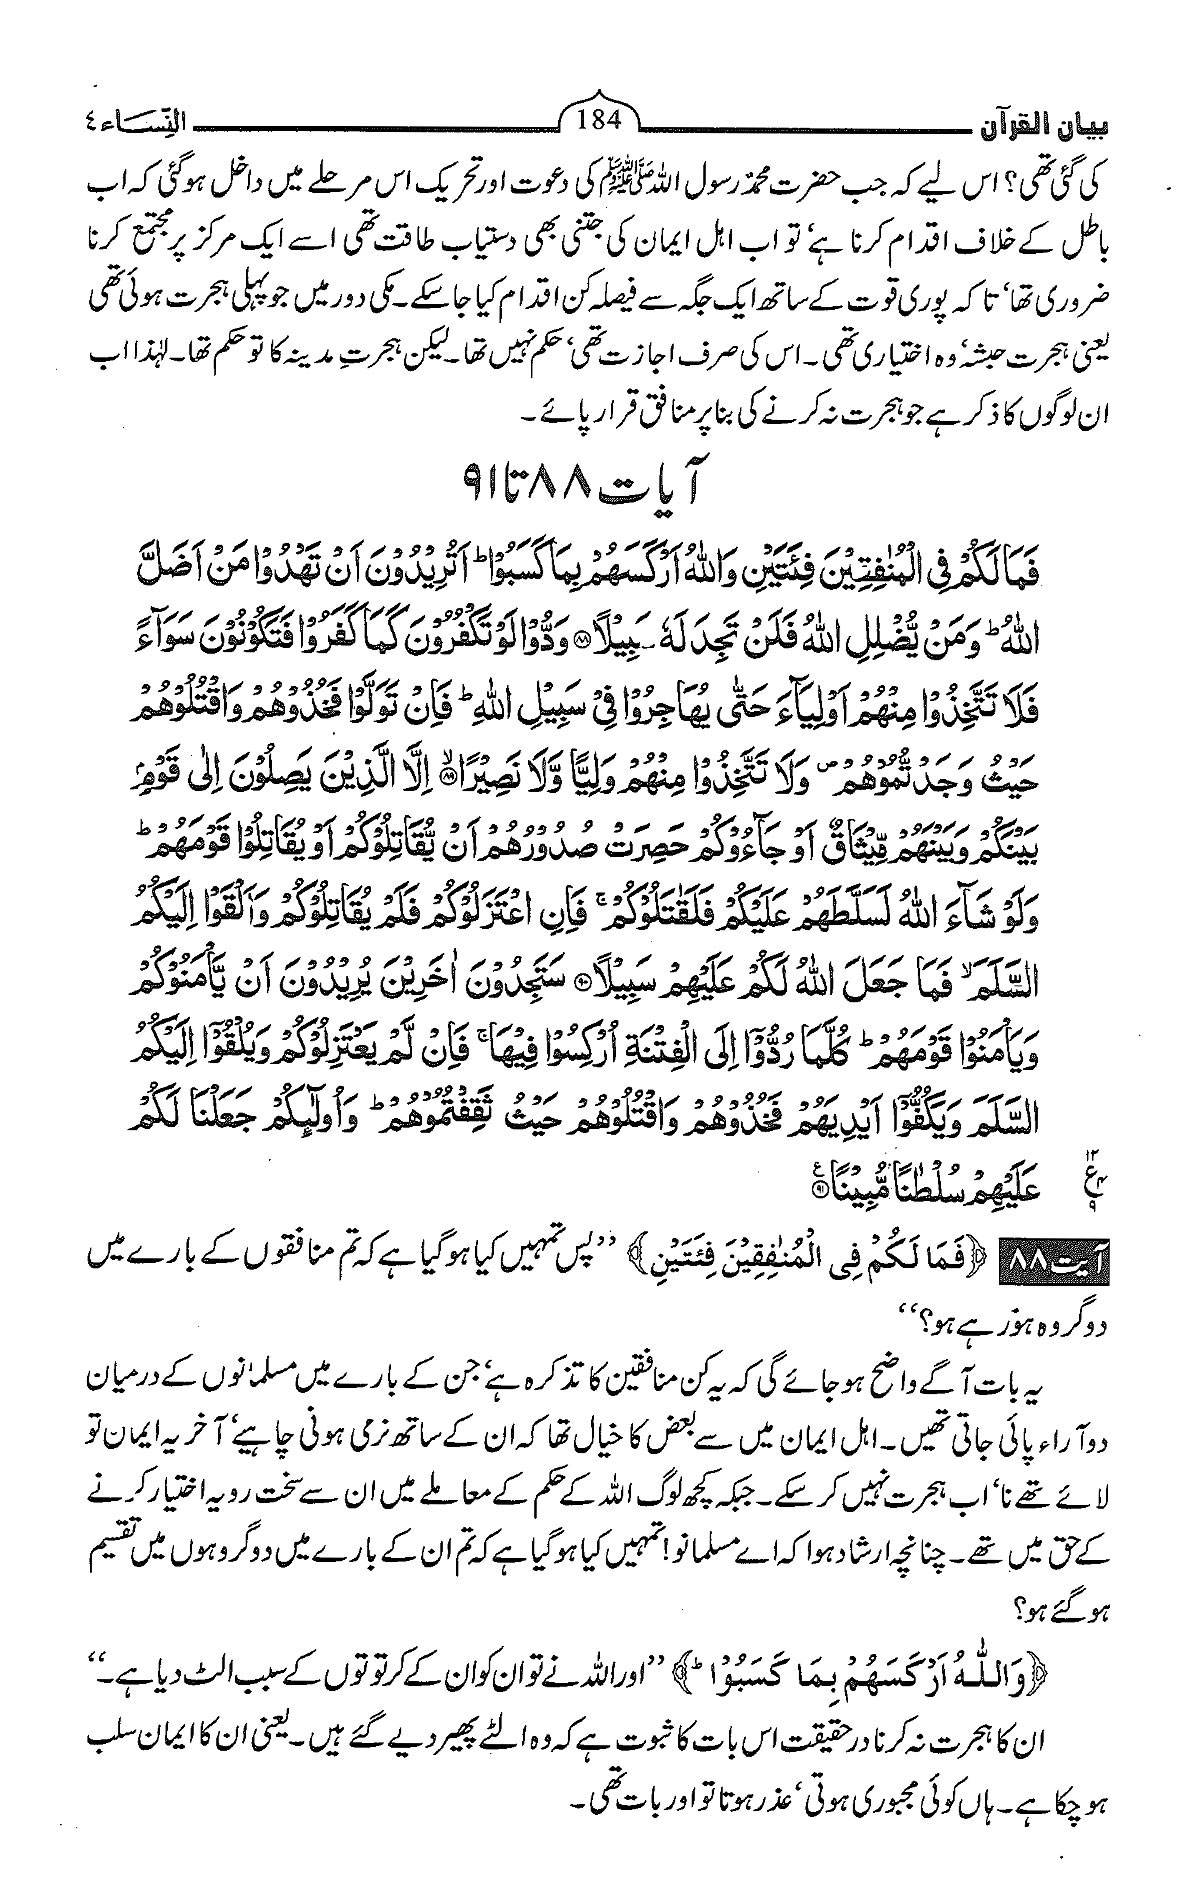 بیان القرآن 184 النِّسَاء ٤
کی گئی تھی؟ اس لیے کہ جب حضرت محمدٌ رسول اللہ ﷺ کی دعوت اور تحریک اس مرحلے میں داخل ہوگئی کہ اب
باطل کے خلاف اقدام کرنا ہے‘ تو اب اہل ایمان کی جتنی بھی دستیاب طاقت تھی اسے ایک مرکز پر مجتمع کرنا
ضروری تھا‘ تاکہ پوری قوت کے ساتھ ایک جگہ سے فیصلہ کن اقدام کیا جا سکے۔ مکی دور میں جو پہلی ہجرت ہوئی تھی
یعنی ہجرت حبشہ‘ وہ اختیاری تھی۔ اس کی صرف اجازت تھی‘ حکم نہیں تھا۔ لیکن ہجرتِ مدینہ کا تو حکم تھا۔ لہٰذا اب
ان لوگوں کا ذکر ہے جو ہجرت نہ کرنے کی بنا پر منافق قرار پائے۔
آیات ۸۸ تا ۹۱
فَمَا لَكُمْ فِي الْمُنٰفِقِيْنَ فِئَتَيْنِ وَاللّٰهُ اَرْكَسَهُمْ بِمَا كَسَبُوْا ؕ اَتُرِيْدُوْنَ اَنْ تَهْدُوْا مَنْ اَضَلَّ
اللّٰهُ ؕ وَمَنْ يُّضْلِلِ اللّٰهُ فَلَنْ تَجِدَ لَهٗ سَبِيْلًا ﴿۸۸﴾ وَدُّوْا لَوْ تَكْفُرُوْنَ كَمَا كَفَرُوْا فَتَكُوْنُوْنَ سَوَآءً
فَلَا تَتَّخِذُوْا مِنْهُمْ اَوْلِيَآءَ حَتّٰى يُهَاجِرُوْا فِيْ سَبِيْلِ اللّٰهِ ؕ فَاِنْ تَوَلَّوْا فَخُذُوْهُمْ وَاقْتُلُوْهُمْ
حَيْثُ وَجَدْتُّمُوْهُمْ ۪ وَلَا تَتَّخِذُوْا مِنْهُمْ وَلِيًّا وَّلَا نَصِيْرًا ﴿۸۹﴾ۙ اِلَّا الَّذِيْنَ يَصِلُوْنَ اِلٰى قَوْمٍۭ
بَيْنَكُمْ وَبَيْنَهُمْ مِّيْثَاقٌ اَوْ جَآءُوْكُمْ حَصِرَتْ صُدُوْرُهُمْ اَنْ يُّقَاتِلُوْكُمْ اَوْ يُقَاتِلُوْا قَوْمَهُمْ ؕ
وَلَوْ شَآءَ اللّٰهُ لَسَلَّطَهُمْ عَلَيْكُمْ فَلَقٰتَلُوْكُمْ ۚ فَاِنِ اعْتَزَلُوْكُمْ فَلَمْ يُقَاتِلُوْكُمْ وَاَلْقَوْا اِلَيْكُمُ
السَّلَمَ ۙ فَمَا جَعَلَ اللّٰهُ لَكُمْ عَلَيْهِمْ سَبِيْلًا ﴿۹۰﴾ سَتَجِدُوْنَ اٰخَرِيْنَ يُرِيْدُوْنَ اَنْ يَّاْمَنُوْكُمْ
وَيَاْمَنُوْا قَوْمَهُمْ ؕ كُلَّمَا رُدُّوْٓا اِلَى الْفِتْنَةِ اُرْكِسُوْا فِيْهَا ۚ فَاِنْ لَّمْ يَعْتَزِلُوْكُمْ وَيُلْقُوْٓا اِلَيْكُمُ
السَّلَمَ وَيَكُفُّوْٓا اَيْدِيَهُمْ فَخُذُوْهُمْ وَاقْتُلُوْهُمْ حَيْثُ ثَقِفْتُمُوْهُمْ ؕ وَاُولٰٓئِكُمْ جَعَلْنَا لَكُمْ
عَلَيْهِمْ سُلْطٰنًا مُّبِيْنًا ﴿۹۱﴾ع
۱۲
ع ۴
۹
آیت ۸۸ ﴿فَمَا لَكُمْ فِي الْمُنٰفِقِيْنَ فِئَتَيْنِ﴾ ’’پس تمہیں کیا ہو گیا ہے کہ تم منافقوں کے بارے میں
دو گروہ ہو رہے ہو؟‘‘
یہ بات آگے واضح ہو جائے گی کہ یہ کن منافقین کا تذکرہ ہے‘ جن کے بارے میں مسلمانوں کے درمیان
دو آراء پائی جاتی تھیں۔ اہل ایمان میں سے بعض کا خیال تھا کہ ان کے ساتھ نرمی ہونی چاہیے‘ آخر یہ ایمان تو
لائے تھے نا‘ اب ہجرت نہیں کر سکے۔ جبکہ کچھ لوگ اللہ کے حکم کے معاملے میں ان سے سخت رویہ اختیار کرنے
کے حق میں تھے۔ چنانچہ ارشاد ہوا کہ اے مسلمانو! تمہیں کیا ہو گیا ہے کہ تم ان کے بارے میں دو گروہوں میں تقسیم
ہو گئے ہو؟
﴿وَاللّٰهُ اَرْكَسَهُمْ بِمَا كَسَبُوْا ؕ﴾ ’’اور اللہ نے تو ان کو ان کے کرتوتوں کے سبب الٹ دیا ہے۔‘‘
ان کا ہجرت نہ کرنا درحقیقت اس بات کا ثبوت ہے کہ وہ الٹے پھیر دیے گئے ہیں۔ یعنی ان کا ایمان سلب
ہو چکا ہے۔ ہاں کوئی مجبوری ہوتی‘ عذر ہوتا تو اور بات تھی۔